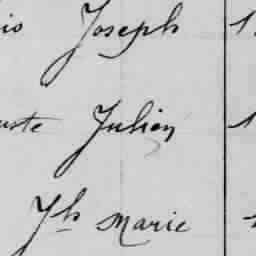 io Joseph 1
uste Julien 1
Jh Marie 1